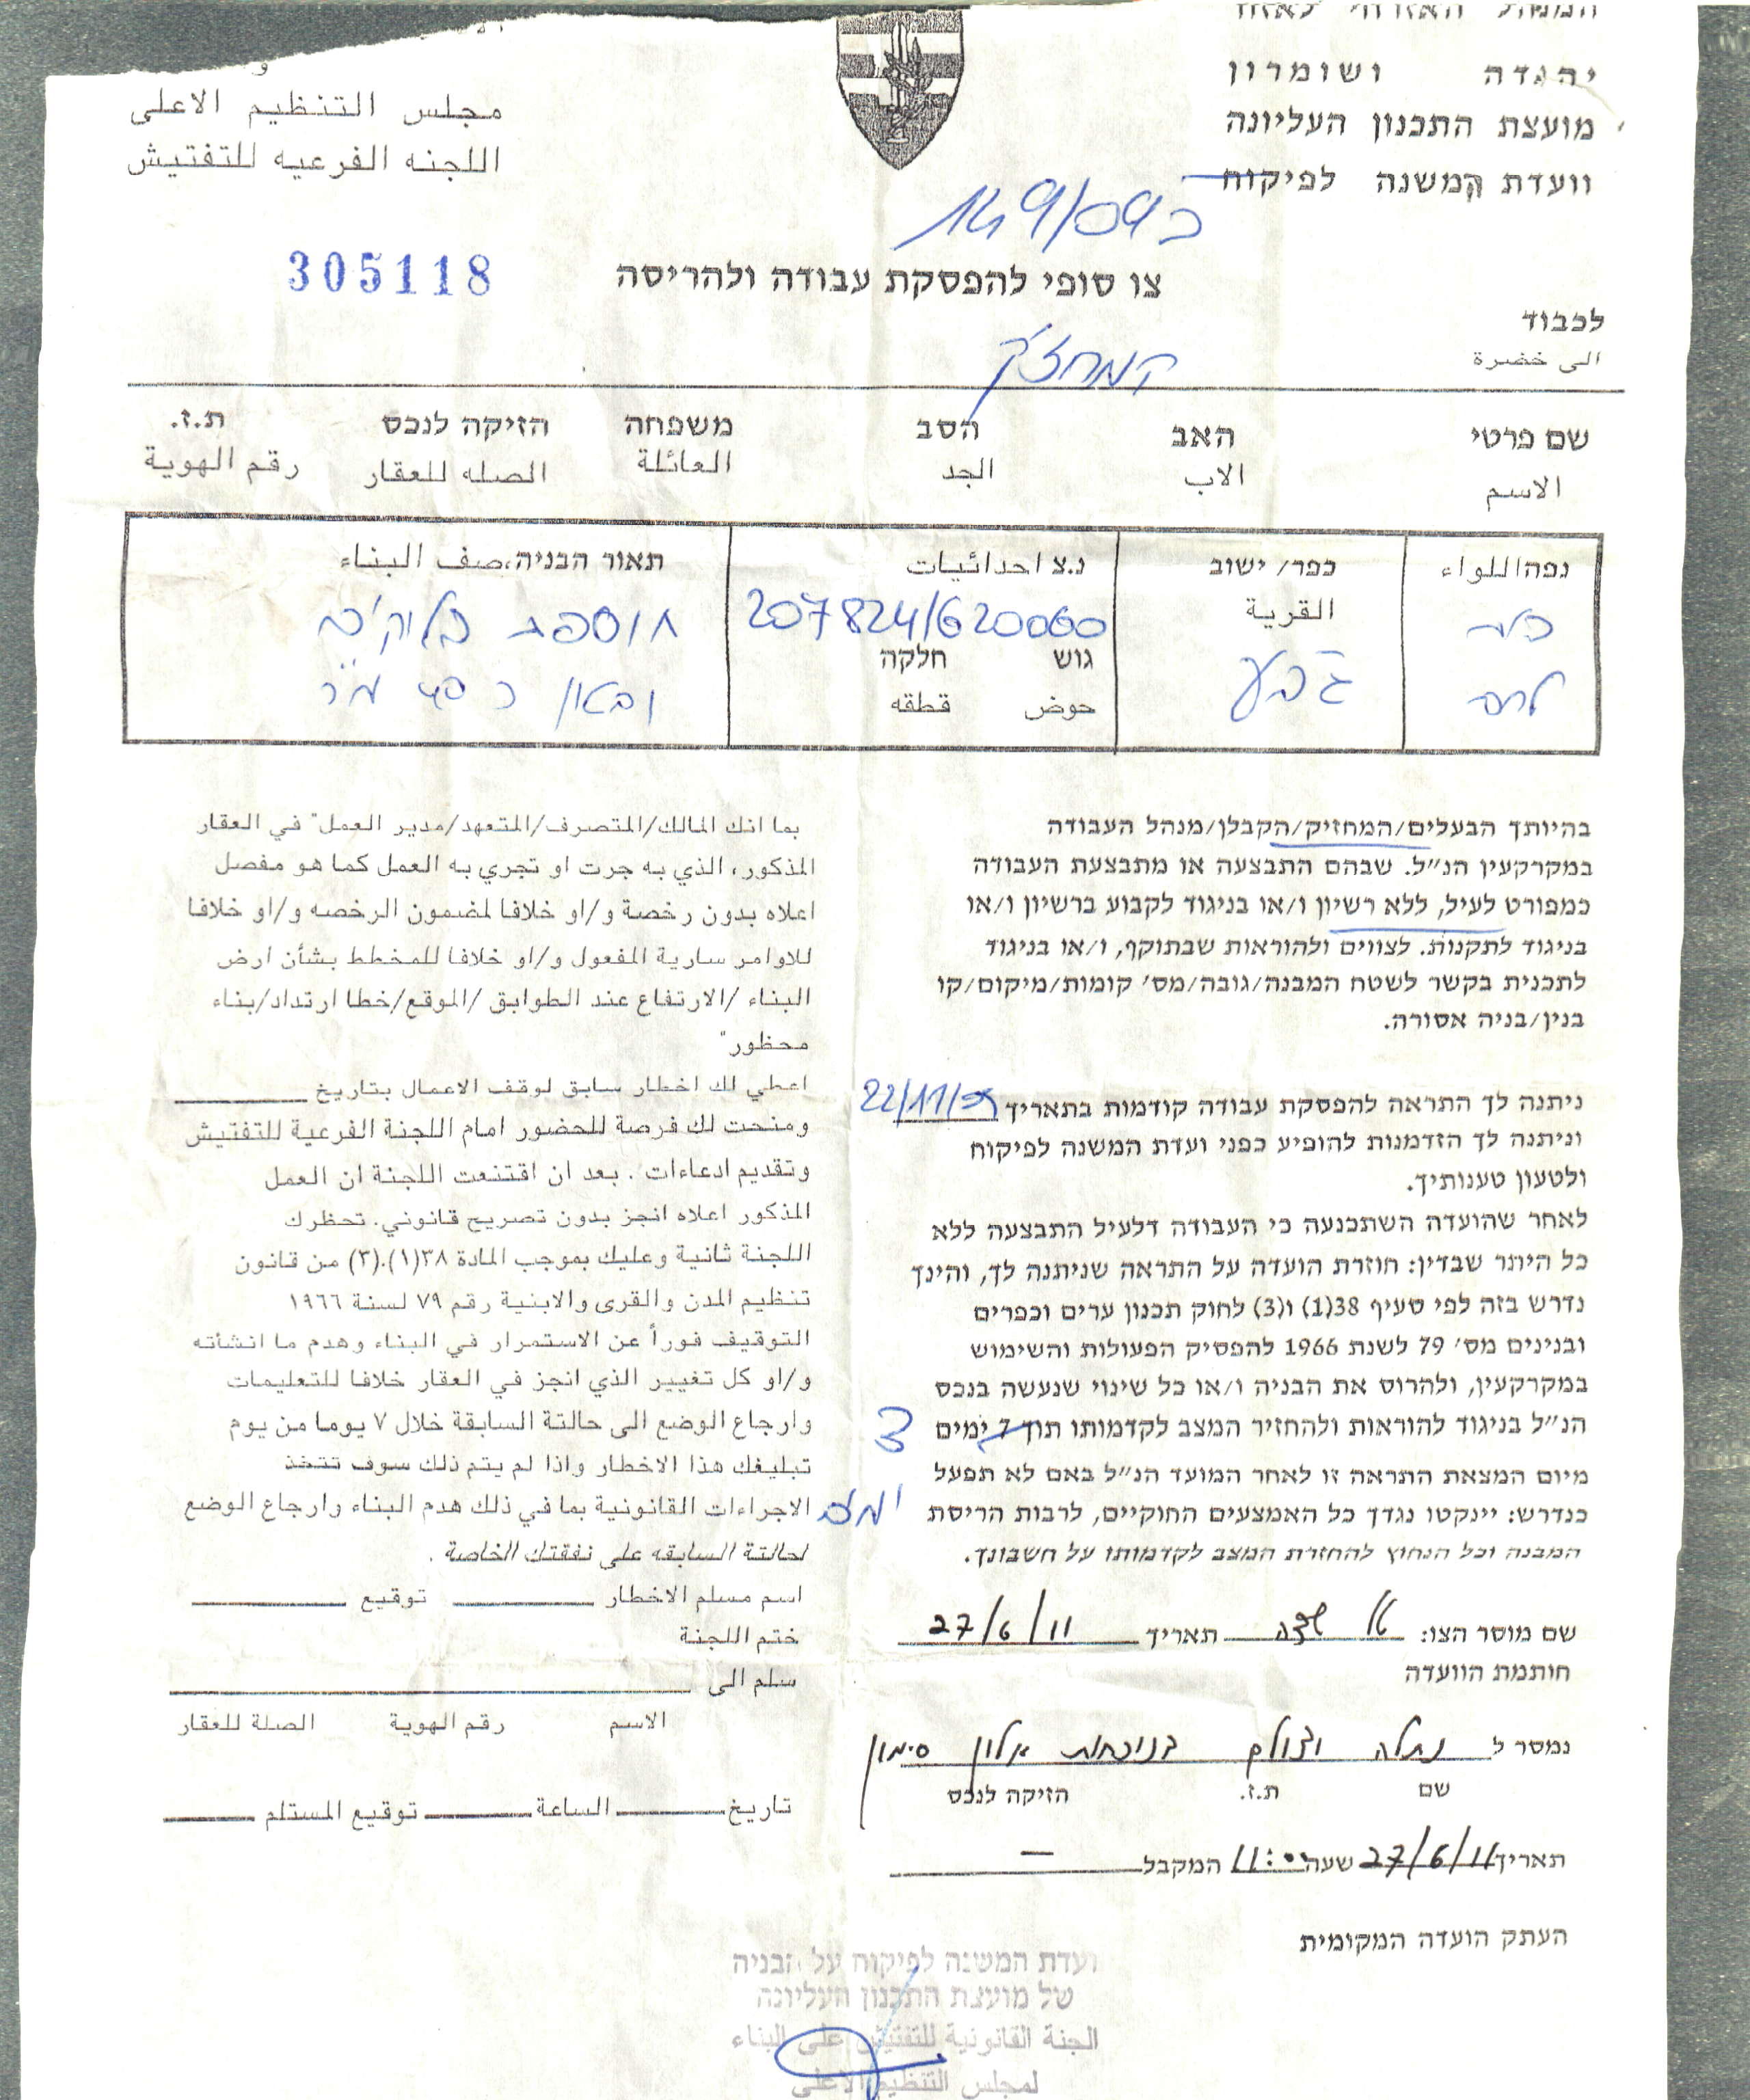 יהודה ושומרון
מועצת התכנון העליונה
וועדת המשנה לפיקוח
مجلس التنظيم الاعلى
اللجنه الفرعيه للتفتيش
149/09
צו סופי להפסקת עבודה ולהריסה
305118
לכבוד
الى خضرة
המחזיק
שם פרטי האב הסב משפחה הזיקה לנכס ת.ז.
الاسم الاب الجد العائلة الصله للعقار رقم الهوية
נפה/اللواء כפר/ ישוב נ.צ احداثيات תאור הבניה،صف البناء
القرية
207824/620060
תוספת בלוקים
גוש חלקה
גבע
ובטון כ 40 מ"ר
حوض قطقه
בהיותך הבעלים/המחזיק/הקבלן/מנהל העבודה
במקרקעין הנ״ל. שבהם התבצעה או מתבצעת העבודה
כמפורט לעיל, ללא רשיון ו/או בניגוד לקבוע ברשיון ו/או
בניגוד לתקנות. לצווים ולהוראות שבתוקף, ו/או בניגוד
לתכנית בקשר לשטח המבנה/גובה/מס׳ קומות/מיקום/קו
בנין/בניה אסורה.
ניתנה לך התראה להפסקת עבודה קודמות בתאריך 22/11/09
וניתנה לך הזדמנות להופיע בפני ועדת המשנה לפיקוח
ולטעון טענותיך.
לאחר שהועדה השתכנעה כי העבודה דלעיל התבצעה ללא
כל היתר שבדין: חוזרת הועדה על התראה שניתנה לך, והינך
נדרש בזה לפי סעיף 38(1) ו(3) לחוק תכנון ערים וכפרים
ובנינים מס׳ 79 לשנת 1966 להפסיק הפעולות והשימוש
במקרקעין, ולהרוס את הבניה ו/או כל שינוי שנעשה בנכס
הנ״ל בניגוד להוראות ולהחזיר המצב לקדמותו תוך 7 ימים 3
מיום המצאת התראה זו לאחר המועד הנ״ל באם לא תפעל
כנדרש: יינקטו נגדך כל האמצעים החוקיים, לרבות הריסת ימים
המבנה וכל הנחוץ להחזרת המצב לקדמותו על חשבונך.
שם מוסר הצו: תאריך 27/6/11
חותמת הוועדה
נמסר ל בנוכחות אלון סימון
שם ת.ז. הזיקה לנכס
תאריך 27/6/11 שעה 11:00 המקבל —
העתק הועדה המקומית
بما انك المالك/المتصرف/المتعهد/مدير العمل" في العقار
المذكور، الذي به جرت او تجري به العمل كما هو مفصل
اعلاه بدون رخصة و/او خلافا لمضمون الرخصه و/او خلافا
للاوامر سارية المفعول و/او خلافا للمخطط بشأن ارض
البناء /الارتفاع عند الطوابق /الموقع/خطا ارتداد/بناء
محظور"
اعطي لك اخطار سابق لوقف الاعمال بتاريخ
ومنحت لك فرصة للحضور امام اللجنة الفرعية للتفتيش
وتقديم ادعاءات . بعد ان اقتنعت اللجنة ان العمل
المذكور اعلاه انجز بدون تصريح قانوني. تحظرك
اللجنة ثانية وعليك بموجب المادة ٣٨(١).(٣) من قانون
تنظيم المدن والقرى والابنية رقم ٧٩ لسنة ١٩٦٦
التوقيف فوراً عن الاستمرار في البناء وهدم ما انشأته
و/او كل تغيير الذي انجز في العقار خلافا للتعليمات
وارجاع الوضع الى حالتة السابقة خلال ٧ يوما من يوم
تبليغك هذا الاخطار واذا لم يتم ذلك سوف تتخذ
الاجراءات القانونية بما في ذلك هدم البناء وارجاع الوضع
لحالتة السابقه على نفقتك الخاصة .
اسم مسلم الاخطار توقيع
ختم اللجنة
سلم الى
الاسم رقم الهوية الصلة للعقار
تاريخ الساعة توقيع المستلم
ועדת המשנה לפיקוח על הבניה
של מועצת התכנון העליונה
الجنة القانونية للتفتيش على البناء
لمجلس التنظيم الاعلى